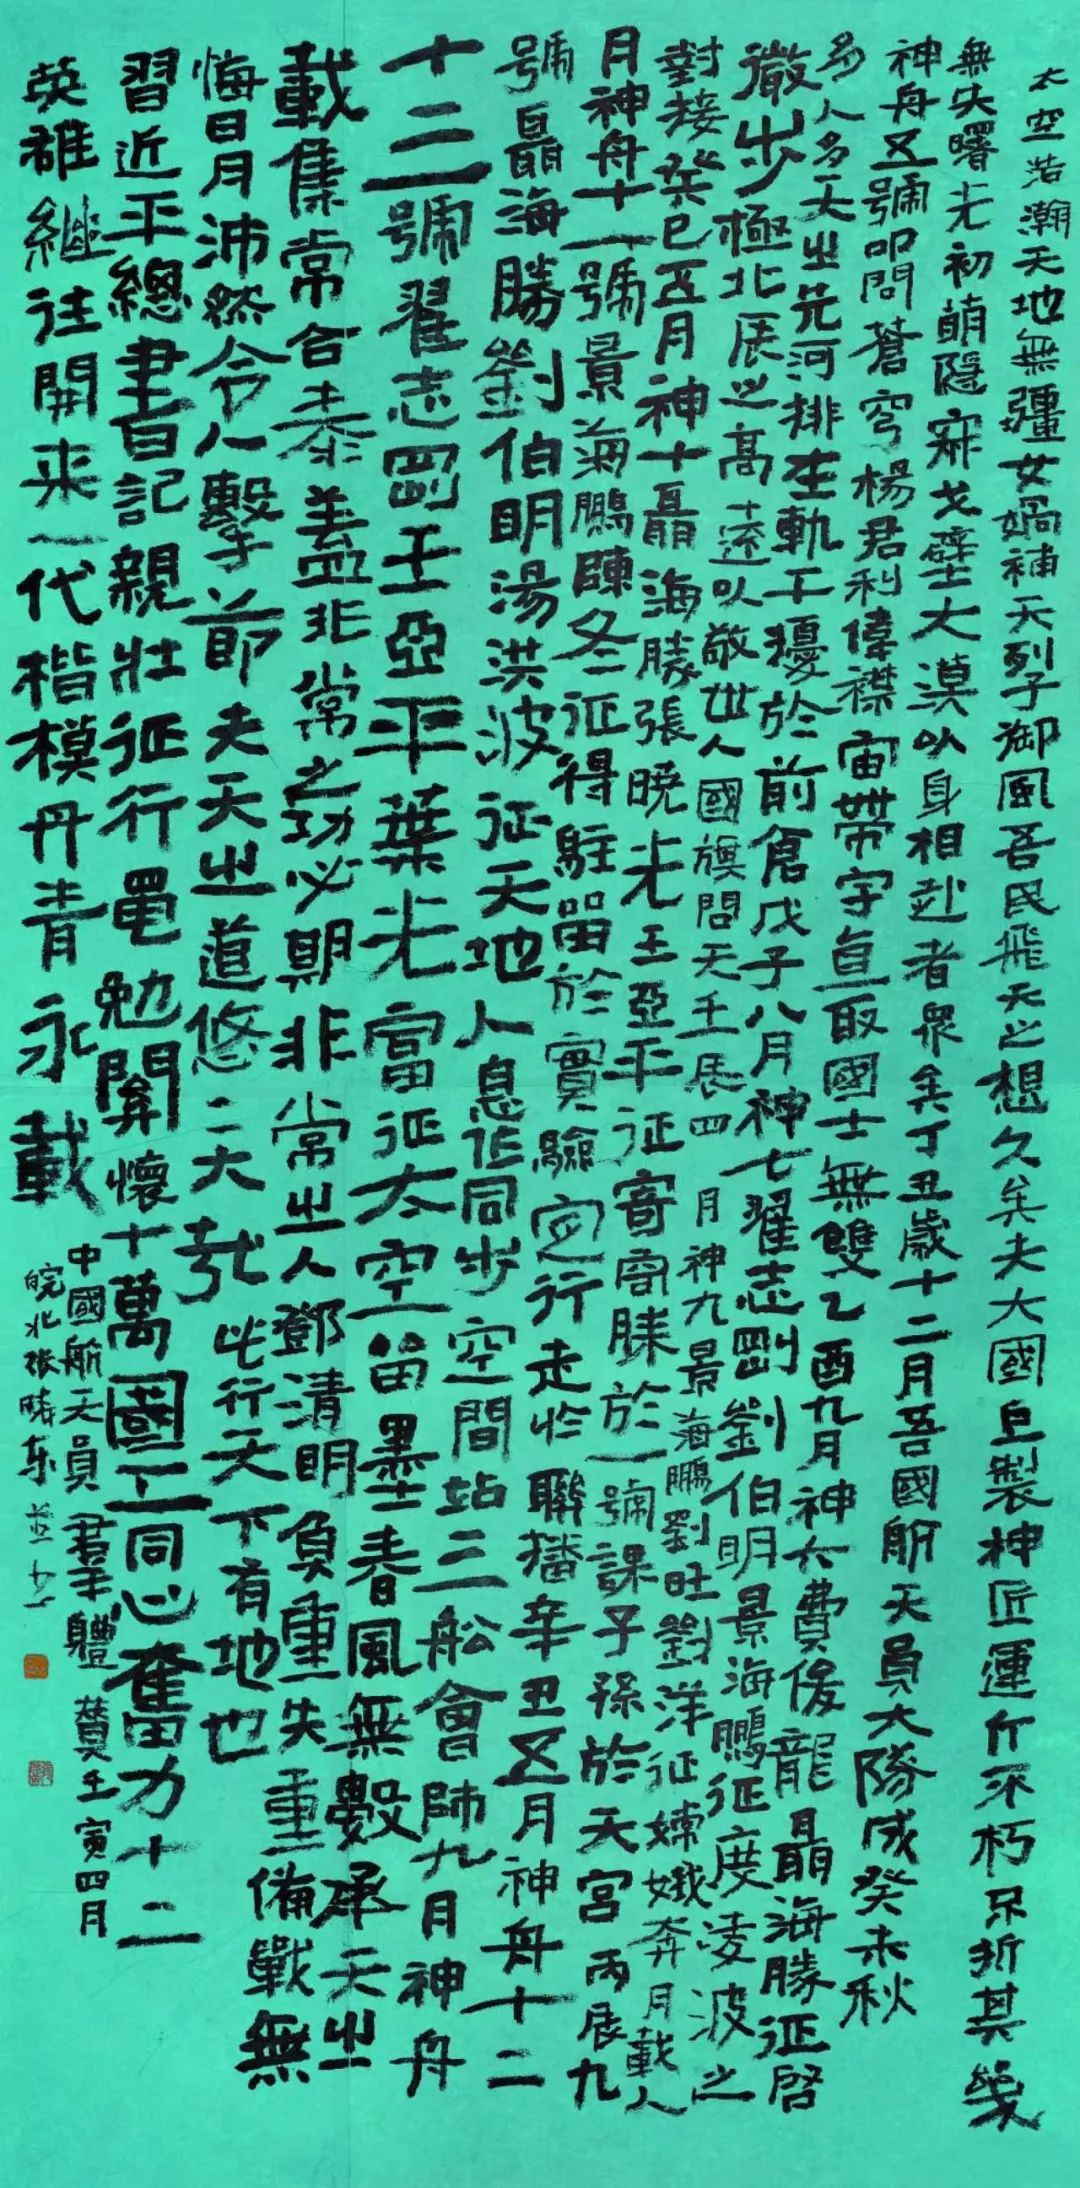 太空浩瀚天地無疆女媧補天列子御風吾民飛天之想久矣夫大國巨製神匠運斤不朽不折其幾
無失曙光初萌隱寐戈壁大漠以身相赴者眾矣丁丑歲十二月吾國航天員大隊成癸未秋
神舟五號叩問蒼穹楊君利偉襟宙帶宇直取國士無雙乙酉九月神六費俊龍聶海勝征啓
多人多天之先河排查軌干擾於前倉戊子八月神七翟志剛劉伯明景海鵬征度凌波之
微步極北辰之高遠以敬世人國旗問天壬辰四月神九景海鵬劉旺劉洋征嫦娥奔月載人
對接癸巳五月神十聶海勝張曉光王亞平征寄商脥於一號課子孫於天宮丙辰九
月神舟十一號景海鵬陳冬征得駐留於實驗室行走於聯播辛丑五月神舟十二
號聶海勝劉伯明湯洪波征天地人息作同步空間站三船會師九月神舟
十三號翟志剛王亞平葉光富征太空笛墨春風無數承天之
載集常合泰蓋非常之功必期非常之人鄧清明負重失重備戰無
悔日月沛然令人擊節夫天之道悠二大哉此行天下有地也
習近平總書記親壯征行黽勉關懷十萬國工同心奮力十二
英雄繼往開來一代楷模丹青永載
中國航天員群英贊壬寅四月
皖北張曉東並書